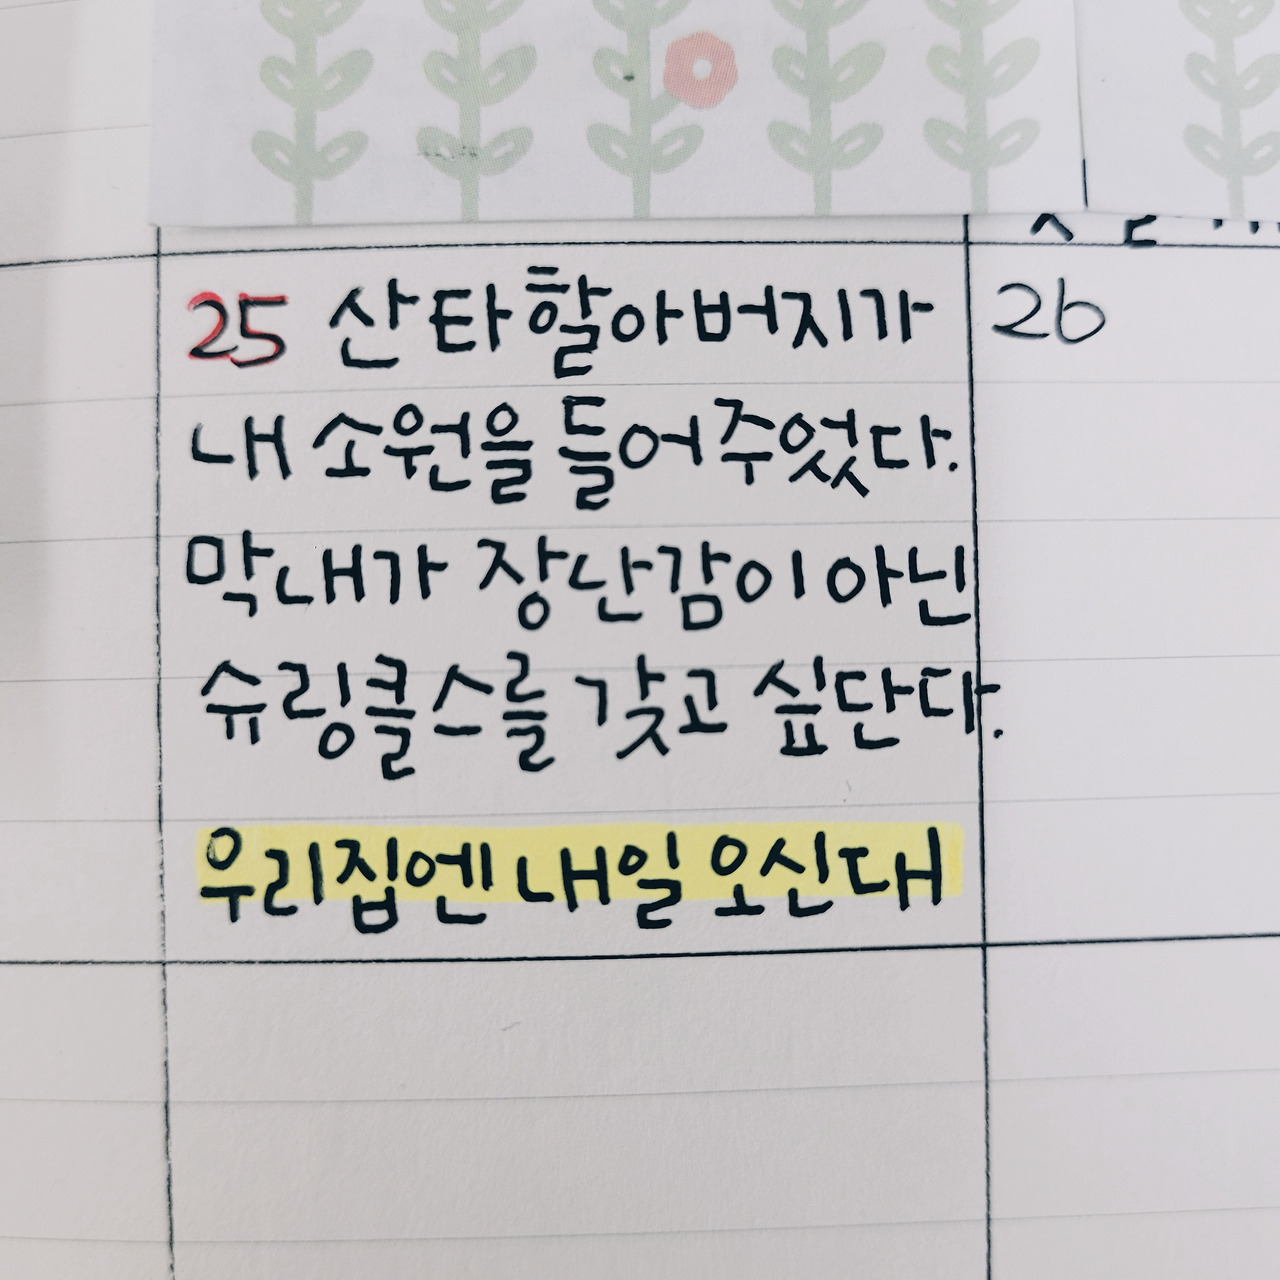 25 산타할아버지가
26
내 소원을 들어주었다.
막내가 장난감이 아닌
슈링클스를 갖고 싶단다.
우리집엔 내일 오신대